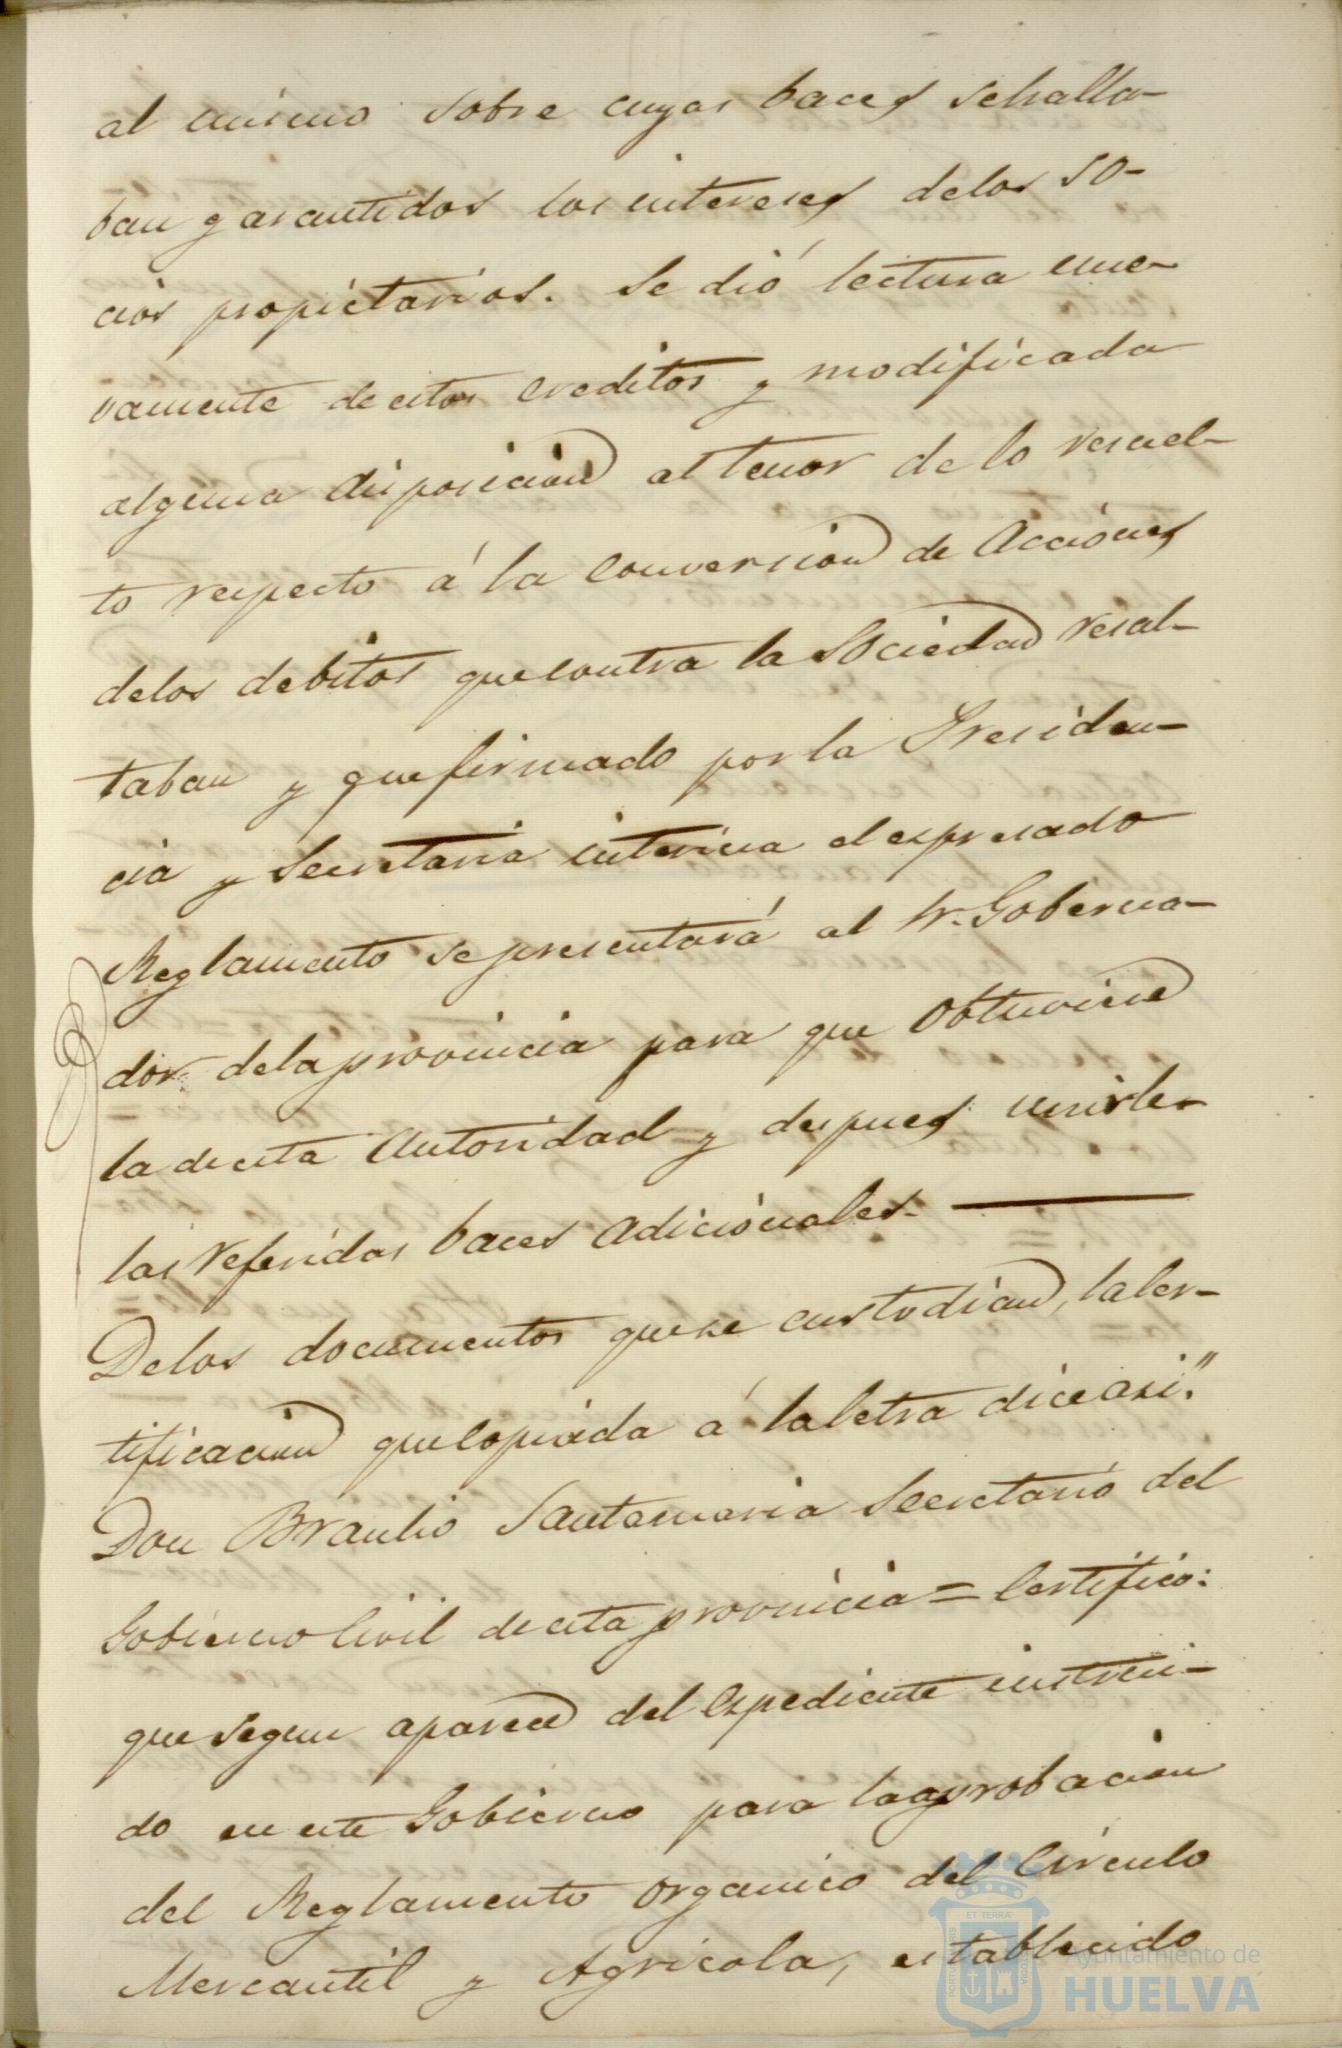 al mismo sobre cuyas baces sehalla-
ban garantidos los intereses delos so-
cios propietarios. Se dió lectura nue-
vamente deestos creditos y modificada
alguna disposicion al tenor de lo resuel-
to respecto á la conversion de Acciones
delos debitos quecontra la Sociedad resal-
taban y quefirmado por la Presiden-
cia y Secretaria interina el espresado
Reglamento sepresentará al Sr. Goberna-
dor delaprovincia para que obtuviese
la deesta Autoridad y despues unirle
las referidas baces adicionales.
Delos documentos quese custodian, lacer-
tificacion quecopiada á laletra diceasi."
Don Braulio Santamaria Secretario del
Gobierno Civil deestaprovincia = Certifico:
quesegun aparece del Espediente instrui-
do eneste Gobierno para laaprobacion
del Reglamento organico del Círculo
Mercantil y Agricola, establecido
ET TERRÆ
PORTUS MARIS
CUSTODIA
Ayuntamiento de
HUELVA